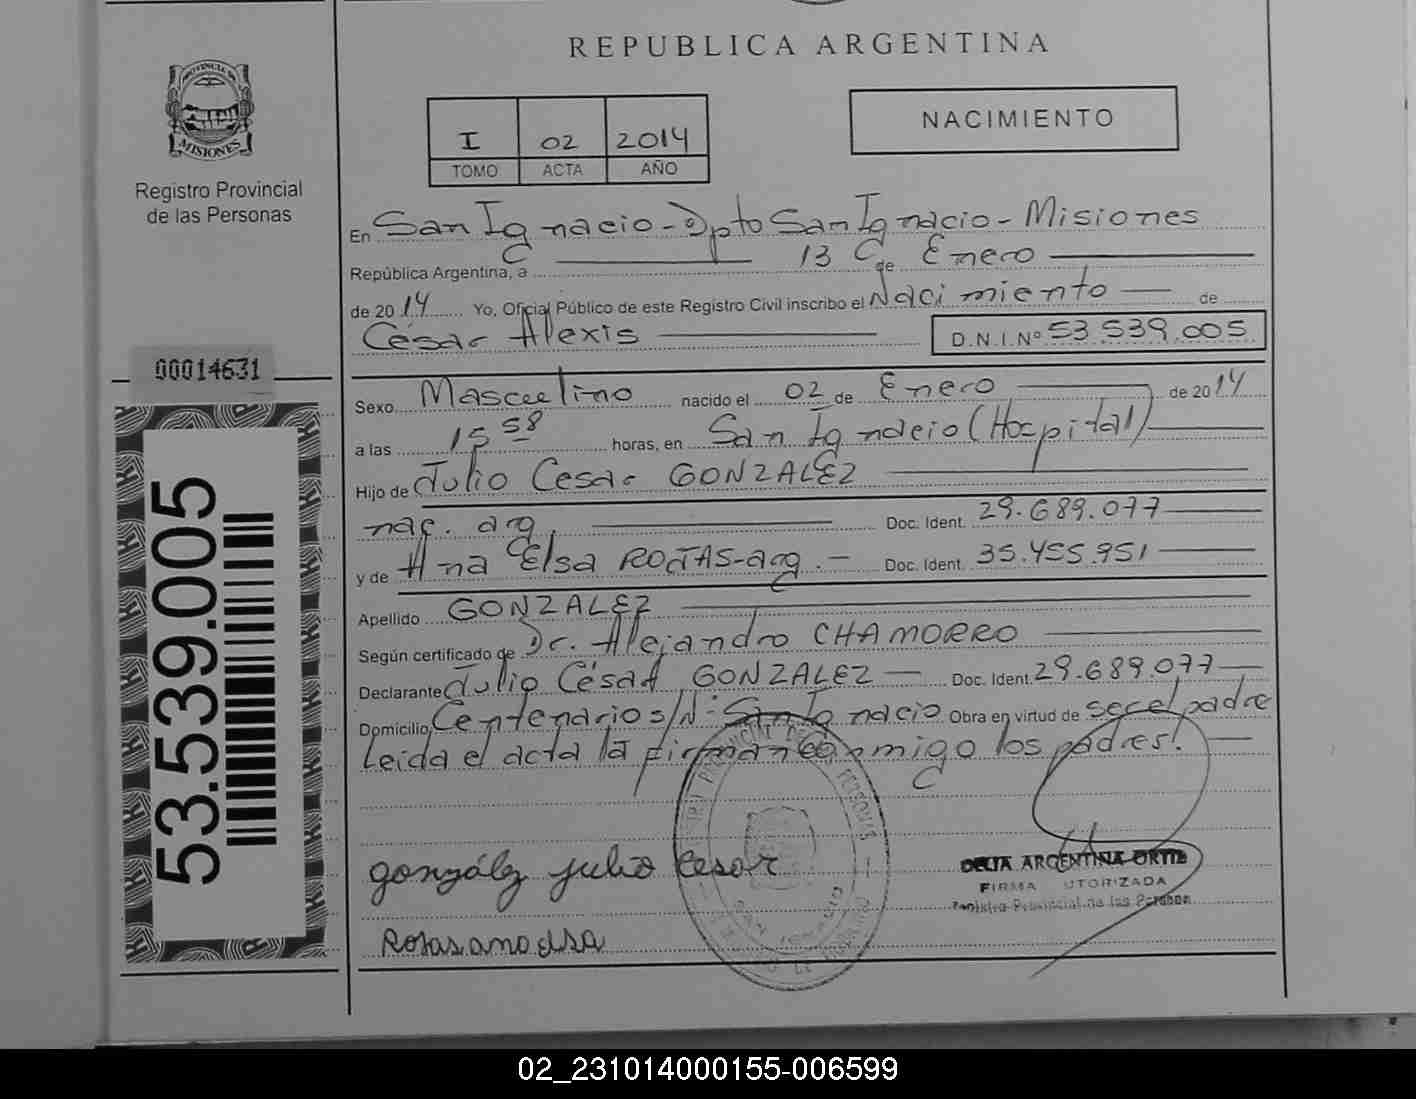 REPUBLICA ARGENTINA
PROVINCIA DE
MISIONES
Registro Provincial
de las Personas
I 02 2014
TOMO ACTA AÑO
NACIMIENTO
En San Ignacio - Dpto San Ignacio - Misiones
República Argentina, a 13 de Enero
de 2014 Yo, Oficial Público de este Registro Civil inscribo el Nacimiento de
César Alexis D.N.I.Nº 53.539.005
00014631
Sexo Masculino nacido el 02 de Enero de 2014
a las 15 58 horas, en San Ignacio (Hospital)
Hijo de Julio Cesar GONZALEZ
nac. arg. Doc. Ident. 29.689.077
y de Ana Elsa ROJAS - arg. Doc. Ident. 35.455.951
Apellido GONZALEZ
Según certificado de Dr. Alejandro CHAMORRO
Declarante Julio César GONZALEZ Doc. Ident. 29.689.077
Domicilio Centenario s/Nº San Ignacio Obra en virtud de ser el padre
Leida el acta la firman conmigo los padres.
53.539.005
gonzález julio Cesar
DELIA ARGENTINA ORTIZ
FIRMA AUTORIZADA
Registro Provincial de las Personas
Rojas ana elsa
02_231014000155-006599